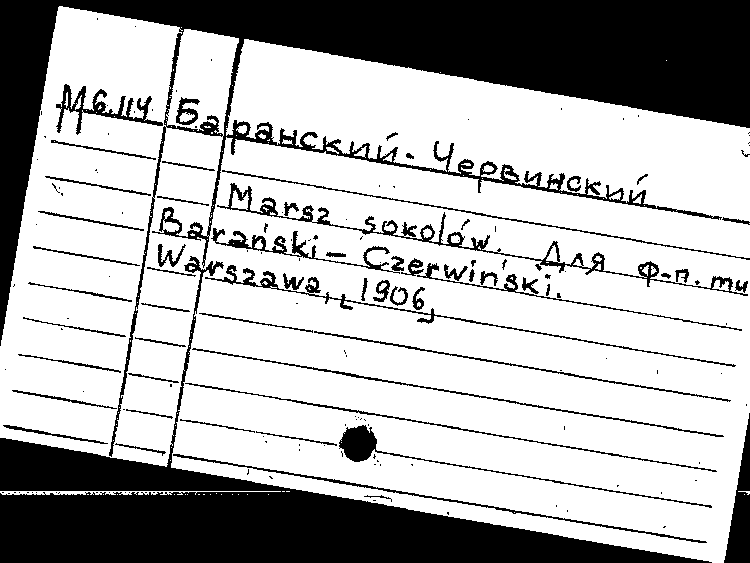 М 6.114 Баранский-Червинский
Marsz sokolów. Для ф-п. ти
Barański – Czerwiński.
Warszawa, [1906]